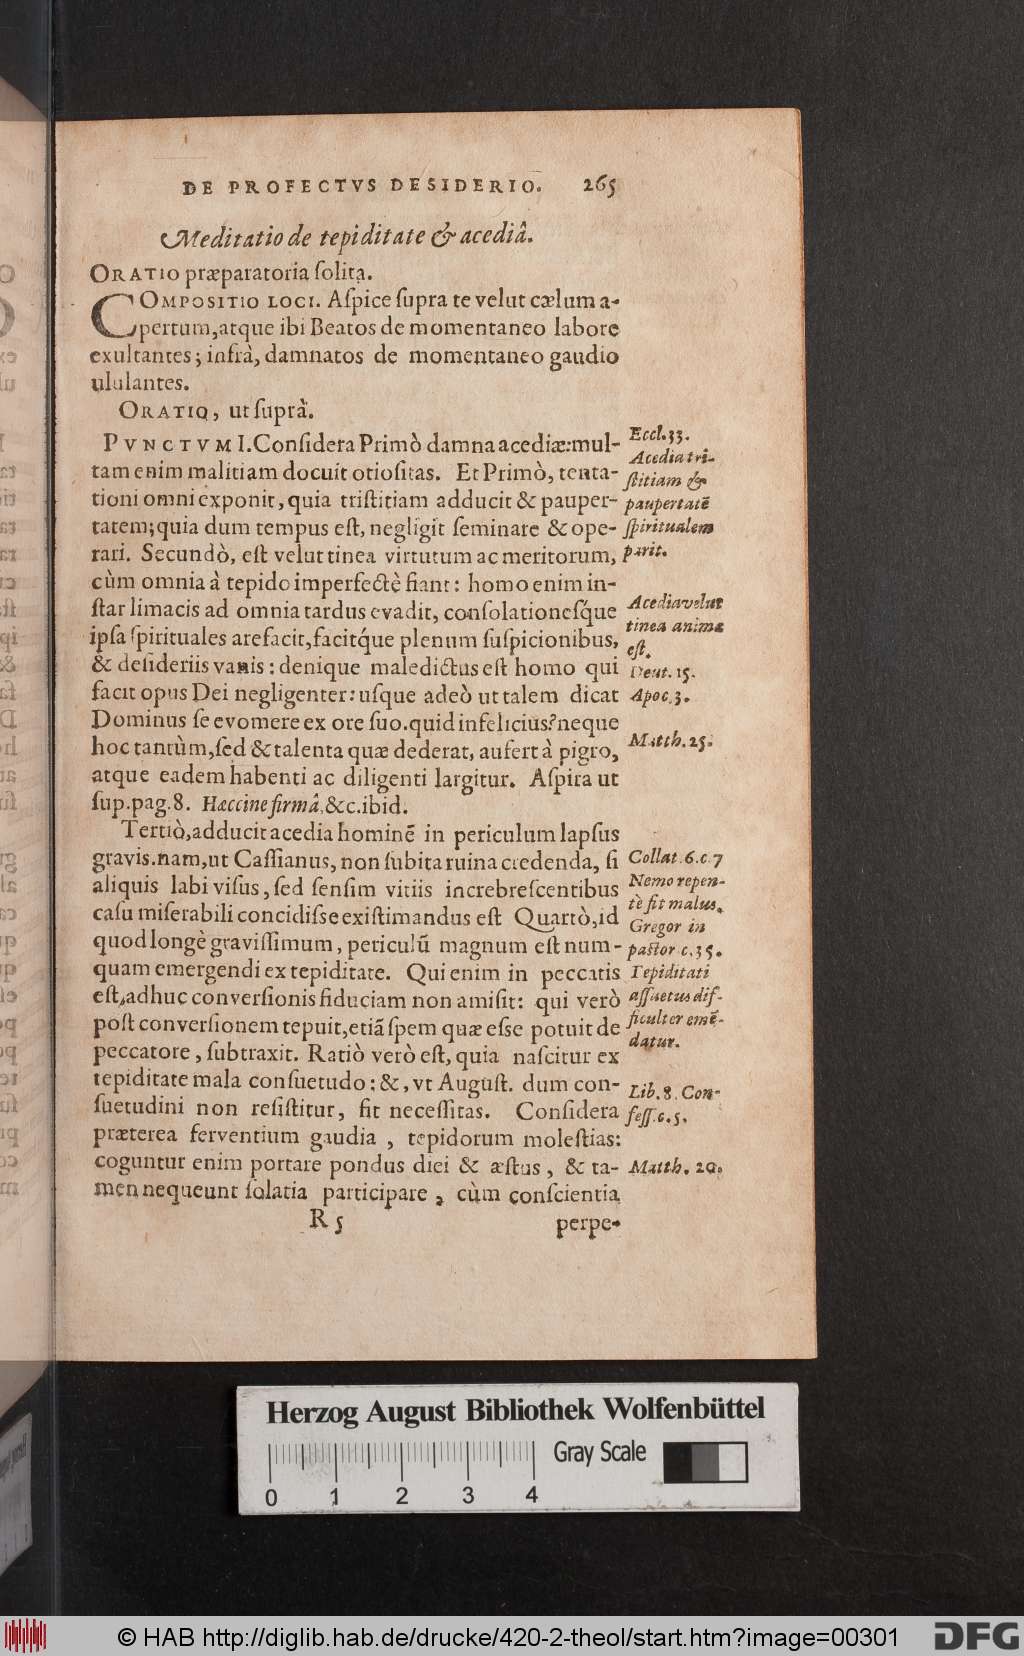 DE PROFECTVS DESIDERIO. 265
Meditatio de tepiditate & acediâ.
ORATIO præparatoria ſolita.
COMPOSITIO LOCI. Aſpice ſupra te velut cælum a-
pertum, atque ibi Beatos de momentaneo labore
exultantes; infrà, damnatos de momentaneo gaudio
ululantes.
ORATIO, ut ſuprà.
PVNCTVM I. Conſidera Primò damna acediæ: mul-
tam enim malitiam docuit otioſitas. Et Primò, tenta-
tioni omni exponit, quia triſtitiam adducit & pauper-
tatem; quia dum tempus eſt, negligit ſeminare & ope-
rari. Secundò, eſt velut tinea virtutum ac meritorum,
cùm omnia à tepido imperfectè fiant: homo enim in-
ſtar limacis ad omnia tardus evadit, conſolationeſq́ue
ipſa ſpirituales arefacit, facitq́ue plenum ſuſpicionibus,
& deſideriis vanis: denique maledictus eſt homo qui
facit opus Dei negligenter: uſque adeò ut talem dicat
Dominus ſe evomere ex ore ſuo. quid infelicius? neque
hoc tantùm, ſed & talenta quæ dederat, aufert à pigro,
atque eadem habenti ac diligenti largitur. Aſpira ut
ſup. pag. 8. Hæccine firmâ, &c. ibid.
Tertiò, adducit acedia hominẽ in periculum lapſus
gravis. nam, ut Caſſianus, non ſubita ruina credenda, ſi
aliquis labi viſus, ſed ſenſim vitiis increbreſcentibus
caſu miſerabili concidiſſe exiſtimandus eſt Quartò, id
quod longè graviſſimum, periculũ magnum eſt num-
quam emergendi ex tepiditate. Qui enim in peccatis
eſt, adhuc converſionis fiduciam non amiſit: qui verò
poſt converſionem tepuit, etiã ſpem quæ eſſe potuit de
peccatore, ſubtraxit. Ratiò verò eſt, quia naſcitur ex
tepiditate mala conſuetudo: &, vt Auguſt. dum con-
ſuetudini non reſiſtitur, fit neceſſitas. Conſidera
præterea ferventium gaudia, tepidorum moleſtias:
coguntur enim portare pondus diei & æſtus, & ta-
men nequeunt ſolatia participare, cùm conſcientia
R 5 perpe-
Eccl. 33.
Acedia tri-
ſtitiam &
paupertatẽ
ſpiritualem
parit.
Acedia velut
tinea animæ
eſt.
Deut. 15.
Apoc. 3.
Matth. 25.
Collat. 6. c. 7
Nemo repen-
tè fit malus.
Gregor in
paſtor c. 35.
Tepiditati
aſſuetus dif-
ficulter emẽ-
datur.
Lib. 8. Con-
feſſ. c. 5.
Matth. 20.
Herzog August Bibliothek Wolfenbüttel
Gray Scale
0 1 2 3 4
© HAB http://diglib.hab.de/drucke/420-2-theol/start.htm?image=00301
DFG